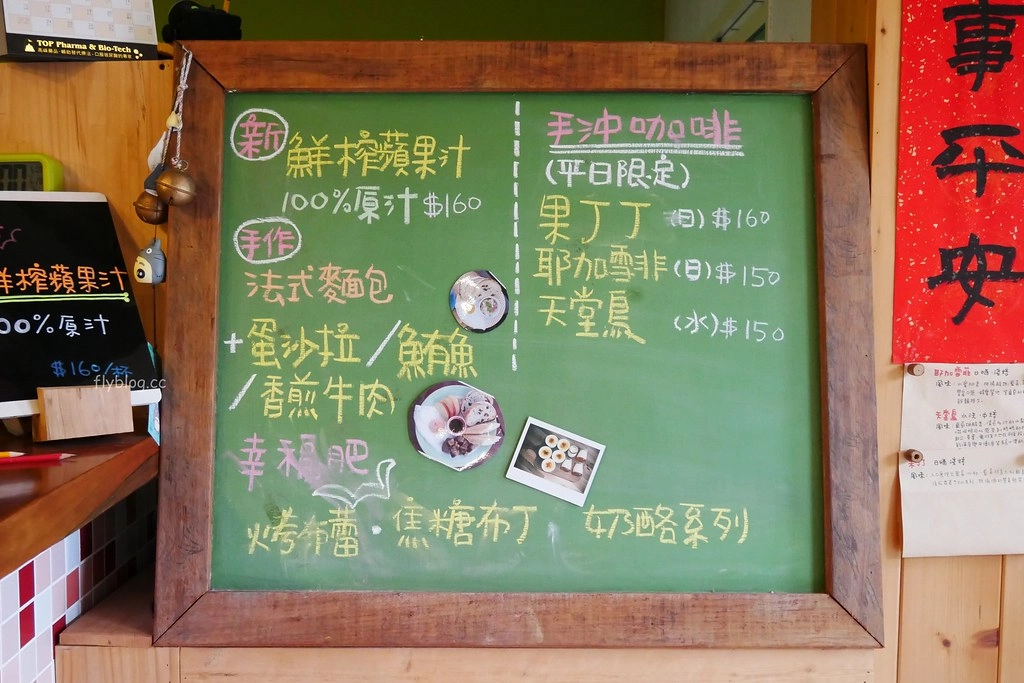 TOP Pharma & Bio-Tech
新
鮮榨蘋果汁
100%原汁 $160
手作
法式麵包
+蛋沙拉/鮪魚
/香煎牛肉
幸福肥
烤布蕾・焦糖布丁 奶酪系列
手沖咖啡
(平日限定)
果丁丁 (日) $160
耶加雪菲 (日) $150
天堂鳥 (水) $150
鮮榨蘋果汁
100%原汁
$160/杯
flyblog.cc
事平安